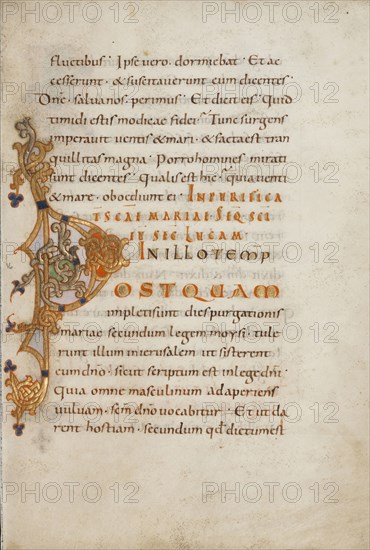 fluctibus · Ipse vero · dormiebat · Et ac
cesserunt · & suscitaverunt eum dicentes
Dñe · salvanos · perimus · Et dicit eis · Quid
timidi estis modicae fidei · Tunc surgens
imperavit ventis & mari · & facta est tran
quillitas magna · Porro homines mirati
sunt dicentes · Qualis est hic · quia venti
& mare · oboediunt ei · IN PURIFICA
SCAE MARIAE
SECUNDUM LUCAM ·
IN ILLO TEMP
POSTQUAM
impleti sunt dies purgationis
mariae secundum legem moysi · tule
runt illum in ierusalem ut sisterent
eum dño · sicut scriptum est in lege dñi ·
quia omne masculinum adaperiens
vulvam · scm dño vocabitur · Et ut da
rent hostiam · secundum qd dictum est
PHOTO 12